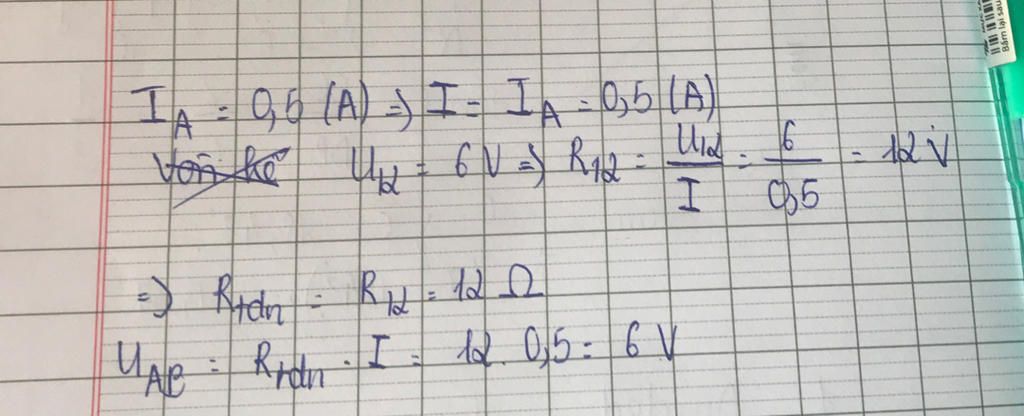 I_A = 0,5 (A) => I = I_A = 0,5 (A)
Vôn kế U_12 = 6 V => R_12 = U_12 / I = 6 / 0,5 = 12 V
=> R_tđn = R_12 = 12 Ω
U_AB = R_tđn . I = 12 . 0,5 = 6 V
Bấm lại sau